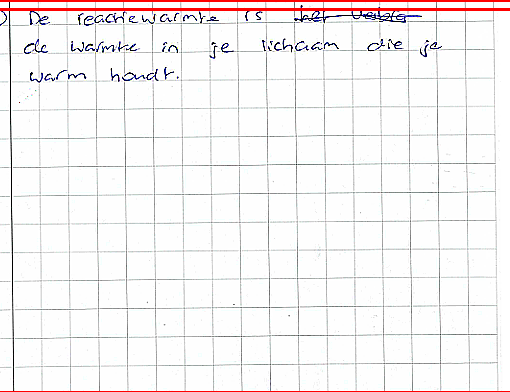 De reactiewarmte is
de warmte in je lichaam die je
warm houdt.